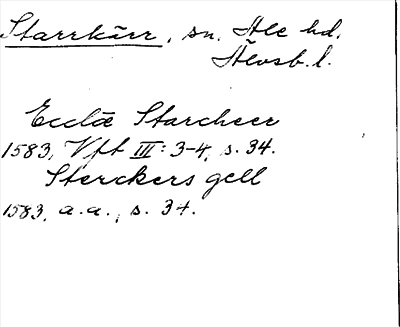 Starrkärr, sn, Ale hd.
Älvsb. l.
Ecclæ Starcheer
1583, Vft III: 3-4, s. 34.
Sterckers gell
1583, a.a., s. 34.